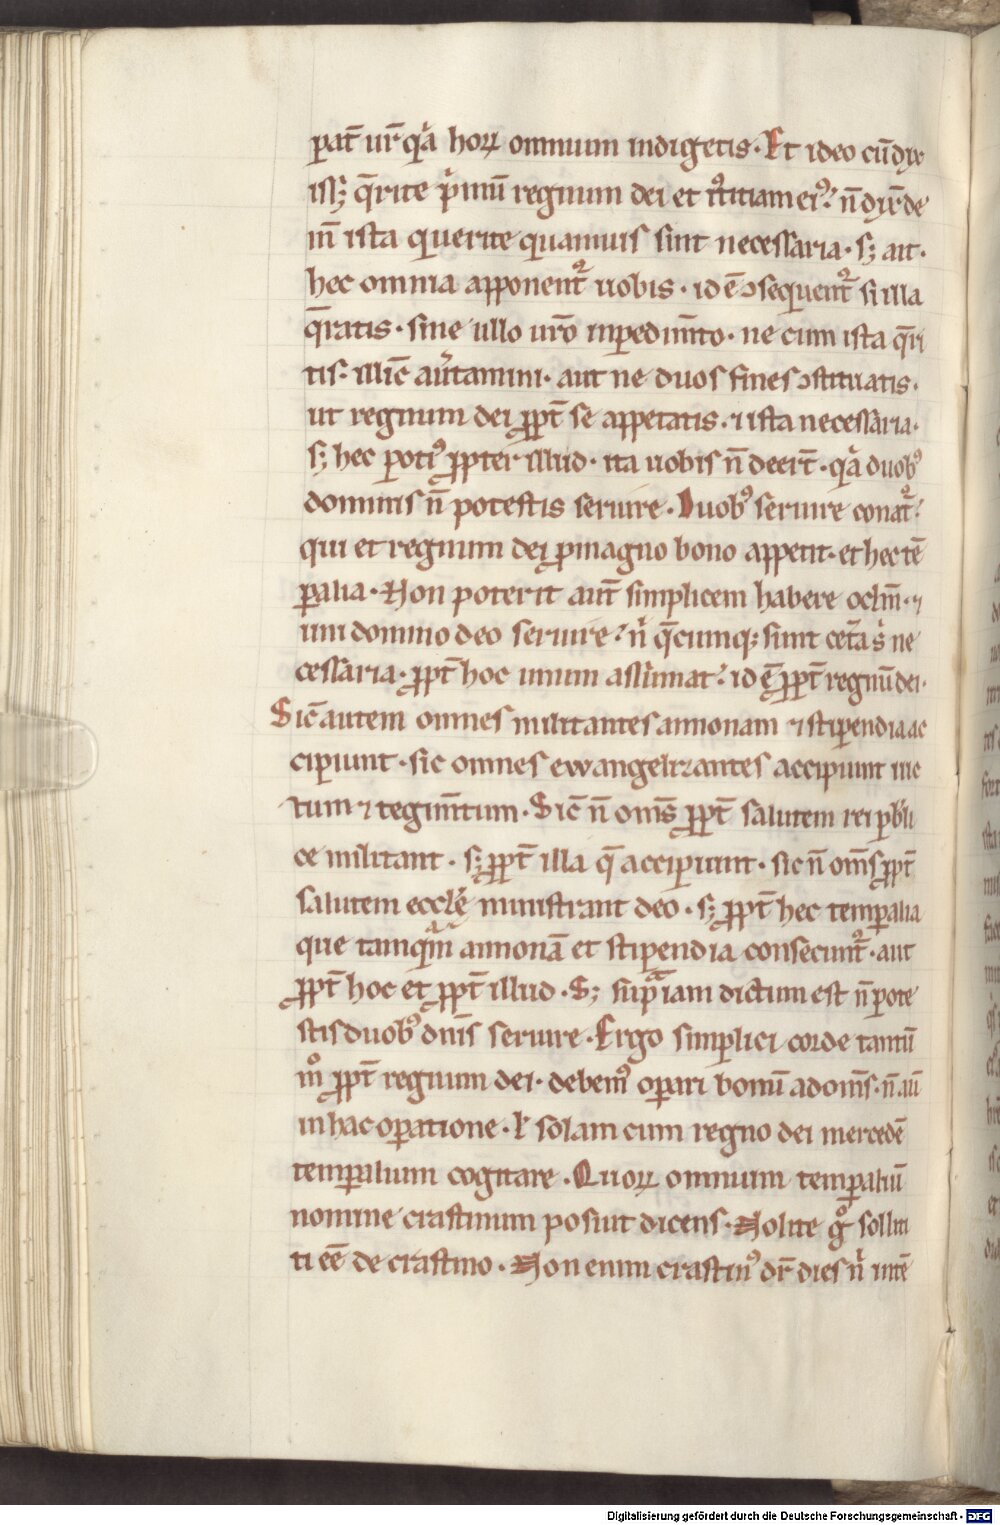 pat̄ ur̄ q̇a hoꝝ omnium indigetis. Et ideo cū dix
iss; q̄rite p̍mū regnum dei et iꝰtitiam eiꝰ. n̄ dix̄ de
in̄ ista querite quamuis sint necessaria. s; ait.
hec omnia apponent᷑ uobis. id ē ↄsequent᷑ si illa
q̄ratis. sine ullo ur̄o inpedim̄to. ne cum ista q̄ri
tis. illic̄ au̍tamini. aut ne duos fines ↄstituatis.
ut regnum dei ꝓpt̄ se appetatis. ⁊ ista necessaria.
s; hec potiꝰ ꝓpter illud. ita uobis n̄ deert̄. q̇a duobꝰ
dominis n̄ potestis seruire. Duobꝰ seruire conat᷑.
qui et regnum dei ꝓ magno bono appetit. et hec tē
ꝑalia. Non poterit aut̄ simplicem habere oclm̄. ⁊
uni domino deo seruire. n̍ q̄cumq; sunt cet̄a s̍ ne
cessaria. ꝓpt̄ hoc unum assumat. id ē ꝓpt̄ regnū dei.
Sic̄ autem omnes militantes annonam ⁊ stipendia ac
cipiunt. sic omnes ewangelizantes accipiunt uic
tum ⁊ tegim̄tum. Sic̄ n̄ oms̄ ꝓpt̄ salutem rei publi
ce militant. s; ꝓpt̄ illa q̄ accipiunt. sic n̄ oms̄ ꝓpt̄
salutem eccl̄e ministrant deo. s; ꝓpt̄ hec temꝑalia
que tamq̄m annonā et stipendia consecunt᷑. aut
ꝓpt̄ hoc et ꝓpt̄ illud. S; supͣ iam dictum est n̄ pote
stis duobꝰ dnīs seruire. Ergo simplici corde tantū
m̊ ꝓpt̄ regnum dei. debemꝰ oꝑari bonū ad oms̄. n̄ aū
in hac oꝑatione. ł solam cum regno dei mercedē
temꝑalium cogitare. Quoꝝ omnium temꝑaliū
nomine crastinum posuit dicens. Nolite g̊ solliti
ti eē de crastino. Non enim crastinꝰ dr̄ dies n̍ in tē